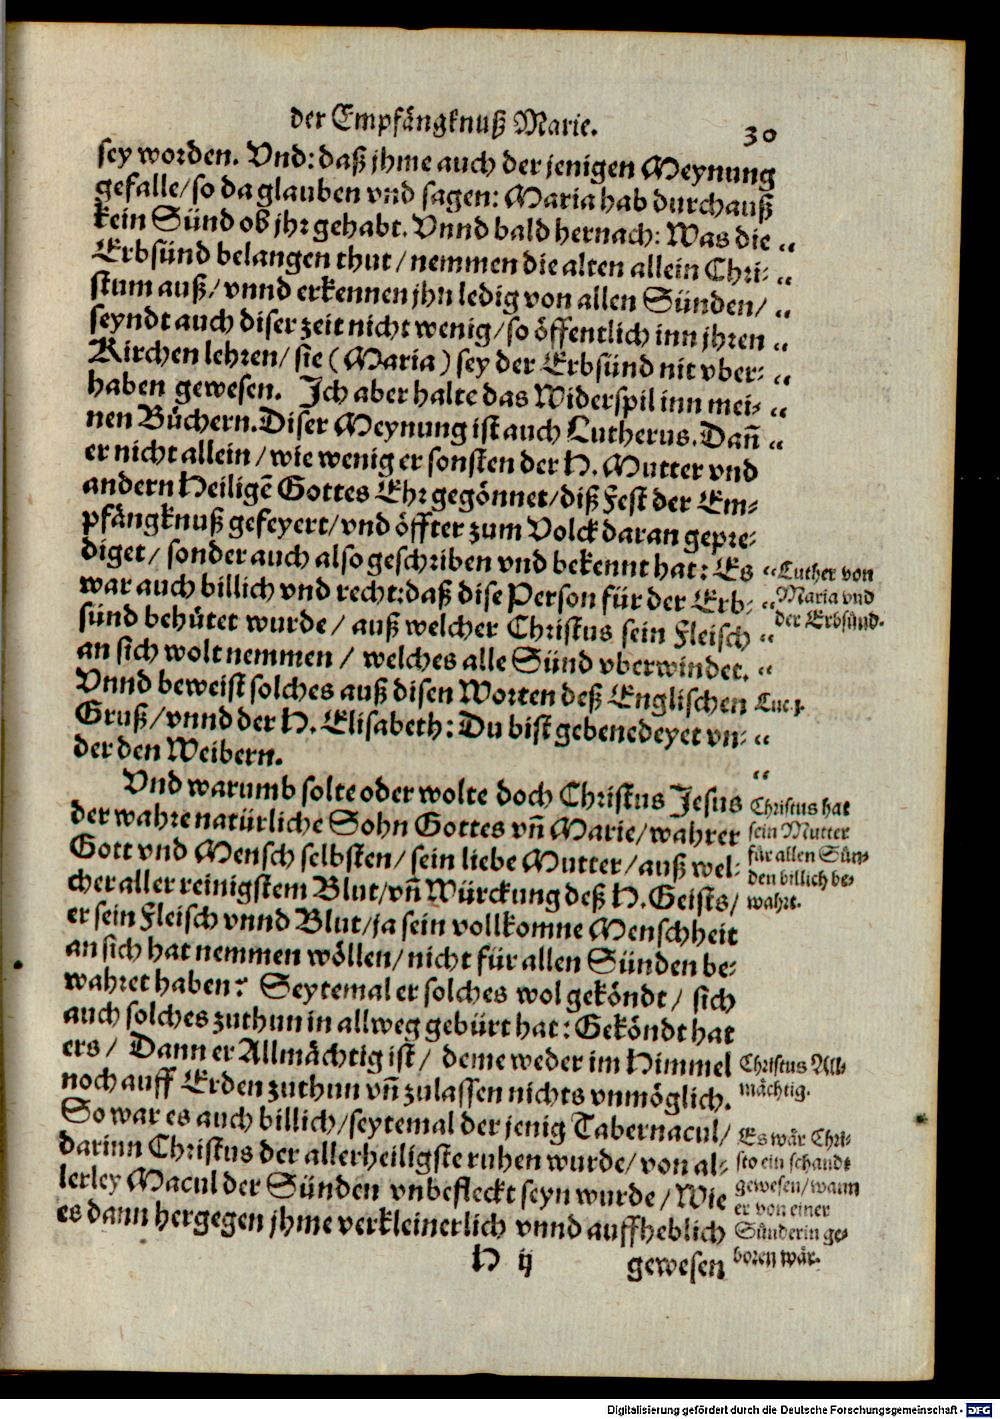 der Empfängknuß Marie.
30
sey worden. Vnd: daß jhme auch der jenigen Meynung
gefalle/ so da glauben vnd sagen: Maria hab durchauß
kein Sünd ob jhr gehabt. Vnnd bald hernach: Was die „
Erbsünd belangen thut/ nemmen die alten allein Chri- „
stum auß/ vnnd erkennen jhn ledig von allen Sünden/ „
seyndt auch diser zeit nicht wenig/ so öffentlich inn jhren „
Kirchen lehren/ sie (Maria) sey der Erbsünd nit vber- „
haben gewesen. Ich aber halte das Widerspil inn mei- „
nen Büchern. Diser Meynung ist auch Lutherus. Dañ „
er nicht allein/ wie wenig er sonsten der H. Mutter vnd
andern Heiligẽ Gottes Ehr gegönnet/ diß Fest der Em-
pfängknuß gefeyert/ vnd öffter zum Volck daran gepre-
diget/ sonder auch also geschriben vnd bekennt hat: Es „
war auch billich vnd recht: daß dise Person für der Erb- „
sünd behütet wurde/ auß welcher Christus sein Fleisch „
an sich wolt nemmen/ welches alle Sünd vberwindet. „
Vnnd beweist solches auß disen Worten deß Englischen
Gruß/ vnnd der H. Elisabeth: Du bist gebenedeyet vn- „
der den Weibern. „
Luther von
Maria vnd
der Erbsünd.
Luc. j.
Vnd warumb solte oder wolte doch Christus Jesus
der wahre natürliche Sohn Gottes vñ Marie/ wahrer
Gott vnd Mensch selbsten/ sein liebe Mutter/ auß wel-
cher aller reinigstem Blut/ vñ Würckung deß H. Geists/
er sein Fleisch vnnd Blut/ ja sein vollkomne Menschheit
an sich hat nemmen wöllen/ nicht für allen Sünden be-
wahret haben? Seytemal er solches wol geköndt/ sich
auch solches zuthun in allweg gebürt hat: Geköndt hat
ers/ Dann er Allmächtig ist/ deme weder im Himmel
noch auff Erden zuthun vñ zulassen nichts vnmöglich.
So war es auch billich/ seytemal der jenig Tabernacul/
darinn Christus der allerheiligste ruhen wurde/ von al-
lerley Macul der Sünden vnbefleckt seyn wurde/ Wie
es dann hergegen jhme verkleinerlich vnnd auffheblich
Christus hat
sein Mutter
für allen Sün-
den billich be-
wahrt.
Christus All-
mächtig.
Es wär Chri-
sto ein schandt
gewesen/ wann
er von einer
Sünderin ge-
boren wär.
H ij
gewesen
Digitalisierung gefördert durch die Deutsche Forschungsgemeinschaft - DFG